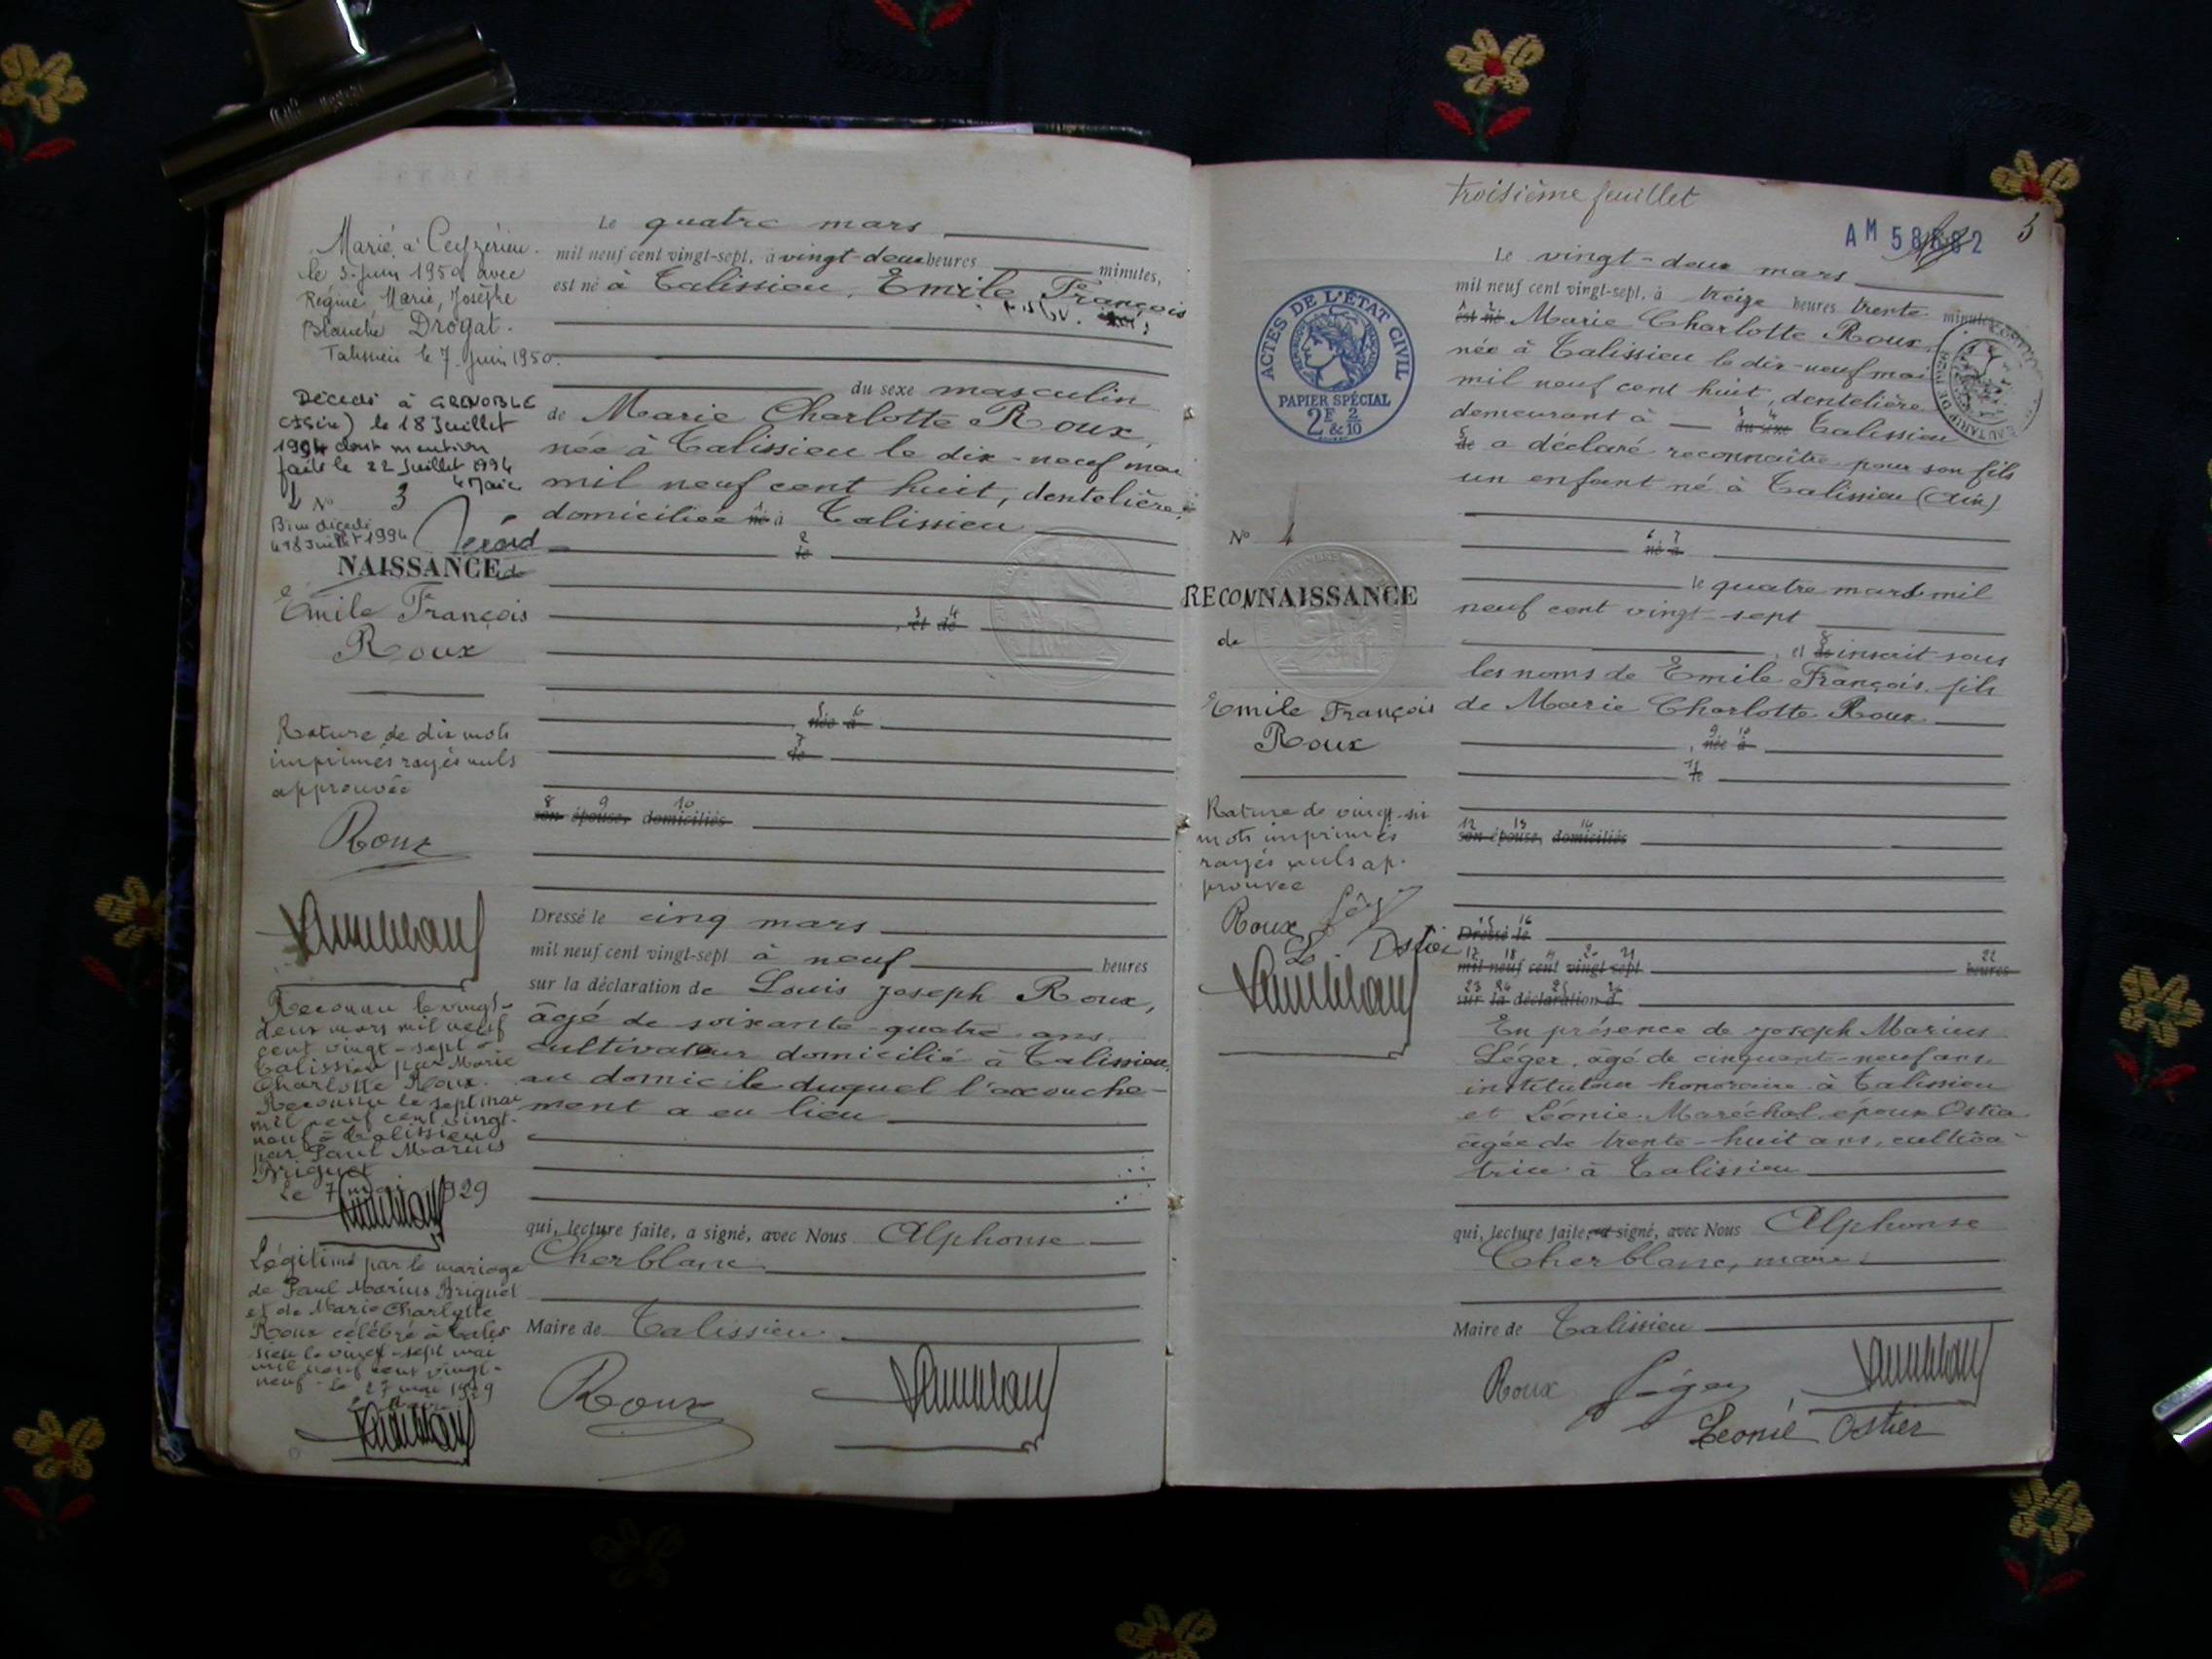 Marié à Ceyzérieu
le 3 juin 1950 avec
Régine, Marie, Josèphe
Blanche Drogat.
Talissieu le 7 juin 1950.
Décédé à GRENOBLE
(Isère) le 18 Juillet
1994 dont mention
faite le 22 Juillet 1994
le Maire
No 3
décédé
le 18 Juillet 1994
NAISSANCE de
Emile François
Roux
Rature de dix mots
imprimés rayés nuls
approuvée
Roux
Reconnu le vingt-
deux mars mil neuf
cent vingt-sept à
Talissieu par Marie
Charlotte Roux.
Reconnu le sept mai
mil neuf cent vingt-
neuf à Talissieu
par Paul Marius
Briguet
Le 7 mai 1929
Légitimé par le mariage
de Paul Marius Briguet
et de Marie Charlotte
Roux célébré à Talis
sieu le vingt-sept mai
mil neuf cent vingt-
neuf - Le 27 mai 1929
Le Maire
Le quatre mars
mil neuf cent vingt-sept, à vingt-deux heures minutes,
est né à Talissieu, Emile François
du sexe masculin
de Marie Charlotte Roux,
née à Talissieu le dix-neuf mai
mil neuf cent huit, dentelière,
domiciliée né à Talissieu
2
le
3 4
, et de
5 6
, née à
7
le
8 9 10
son épouse, domiciliés
Dressé le cinq mars
mil neuf cent vingt-sept à neuf heures
sur la déclaration de Louis Joseph Roux,
âgé de soixante-quatre ans
cultivateur domicilié à Talissieu,
au domicile duquel l'accouche-
ment a eu lieu
qui, lecture faite, a signé, avec Nous Alphonse
Cherblanc
Maire de Talissieu
Roux
troisième feuillet
AM 58 82
3
ACTES DE L'ÉTAT CIVIL
PAPIER SPÉCIAL
2F & 2/10
No 4
RECONNAISSANCE
de
Emile François
Roux
Rature de vingt-six
mots imprimés
rayés nuls ap-
prouvée
Roux
L. Ostier
Le vingt-deux mars
mil neuf cent vingt-sept, à treize heures trente minutes
1 2
est né Marie Charlotte Roux,
née à Talissieu le dix-neuf mai
mil neuf cent huit, dentelière
demeurant à du sexe Talissieu
de a déclaré reconnaître pour son fils
un enfant né à Talissieu (Ain)
6 7
né à
le quatre mars mil
neuf cent vingt-sept
, et de inscrit sous
les noms de Emile François, fils
de Marie Charlotte Roux
9 10
, née à
11
le
12 13 14
son épouse, domiciliés
15 16
Dressé le
17 18 19 20 21 22
mil neuf cent vingt-sept heures
23 24 25 26
sur la déclaration d
En présence de Joseph Marius
Léger, âgé de cinquante-neuf ans,
instituteur honoraire à Talissieu
et Léonie Maréchal, épouse Ostier
âgée de trente-huit ans, cultiva-
trice à Talissieu
qui, lecture faite, a signé, avec Nous Alphonse
Cherblanc, maire
Maire de Talissieu
Roux Léger
Leonie Ostier